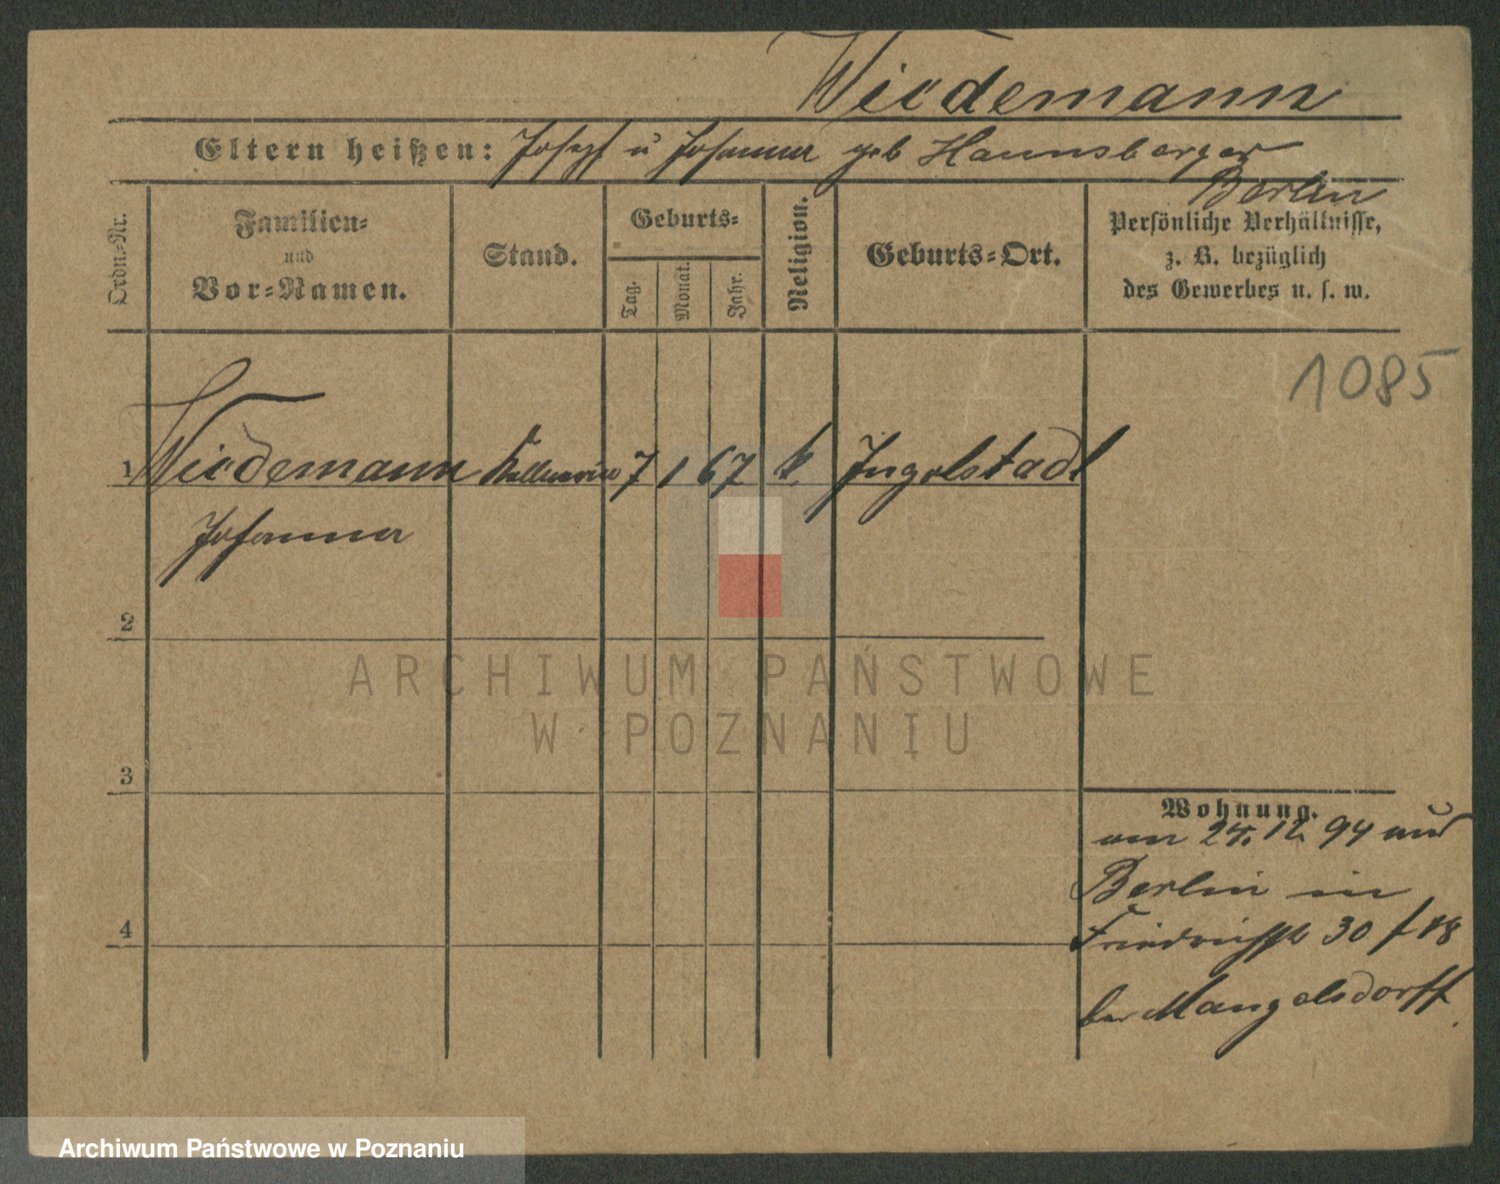 Wiedemann
Eltern heißen: Joseph u Johanna geb Haunsberger
Berlin
Ordn.-Nr.
Familien-
und
Vor-Namen.
Stand.
Geburts-
Tag.
Monat.
Jahr.
Religion.
Geburts-Ort.
Persönliche Verhältnisse,
z. B. bezüglich
des Gewerbes u. s. w.
1085
1 Wiedemann Kellnerin 7 1 67 k. Ingolstadt
Johanna
2
3
4
Wohnung.
am 24. 12. 94 aus
Berlin in
Friedrichstr 30
bei Mangelsdorff
ARCHIWUM PAŃSTWOWE
W POZNANIU
Archiwum Państwowe w Poznaniu